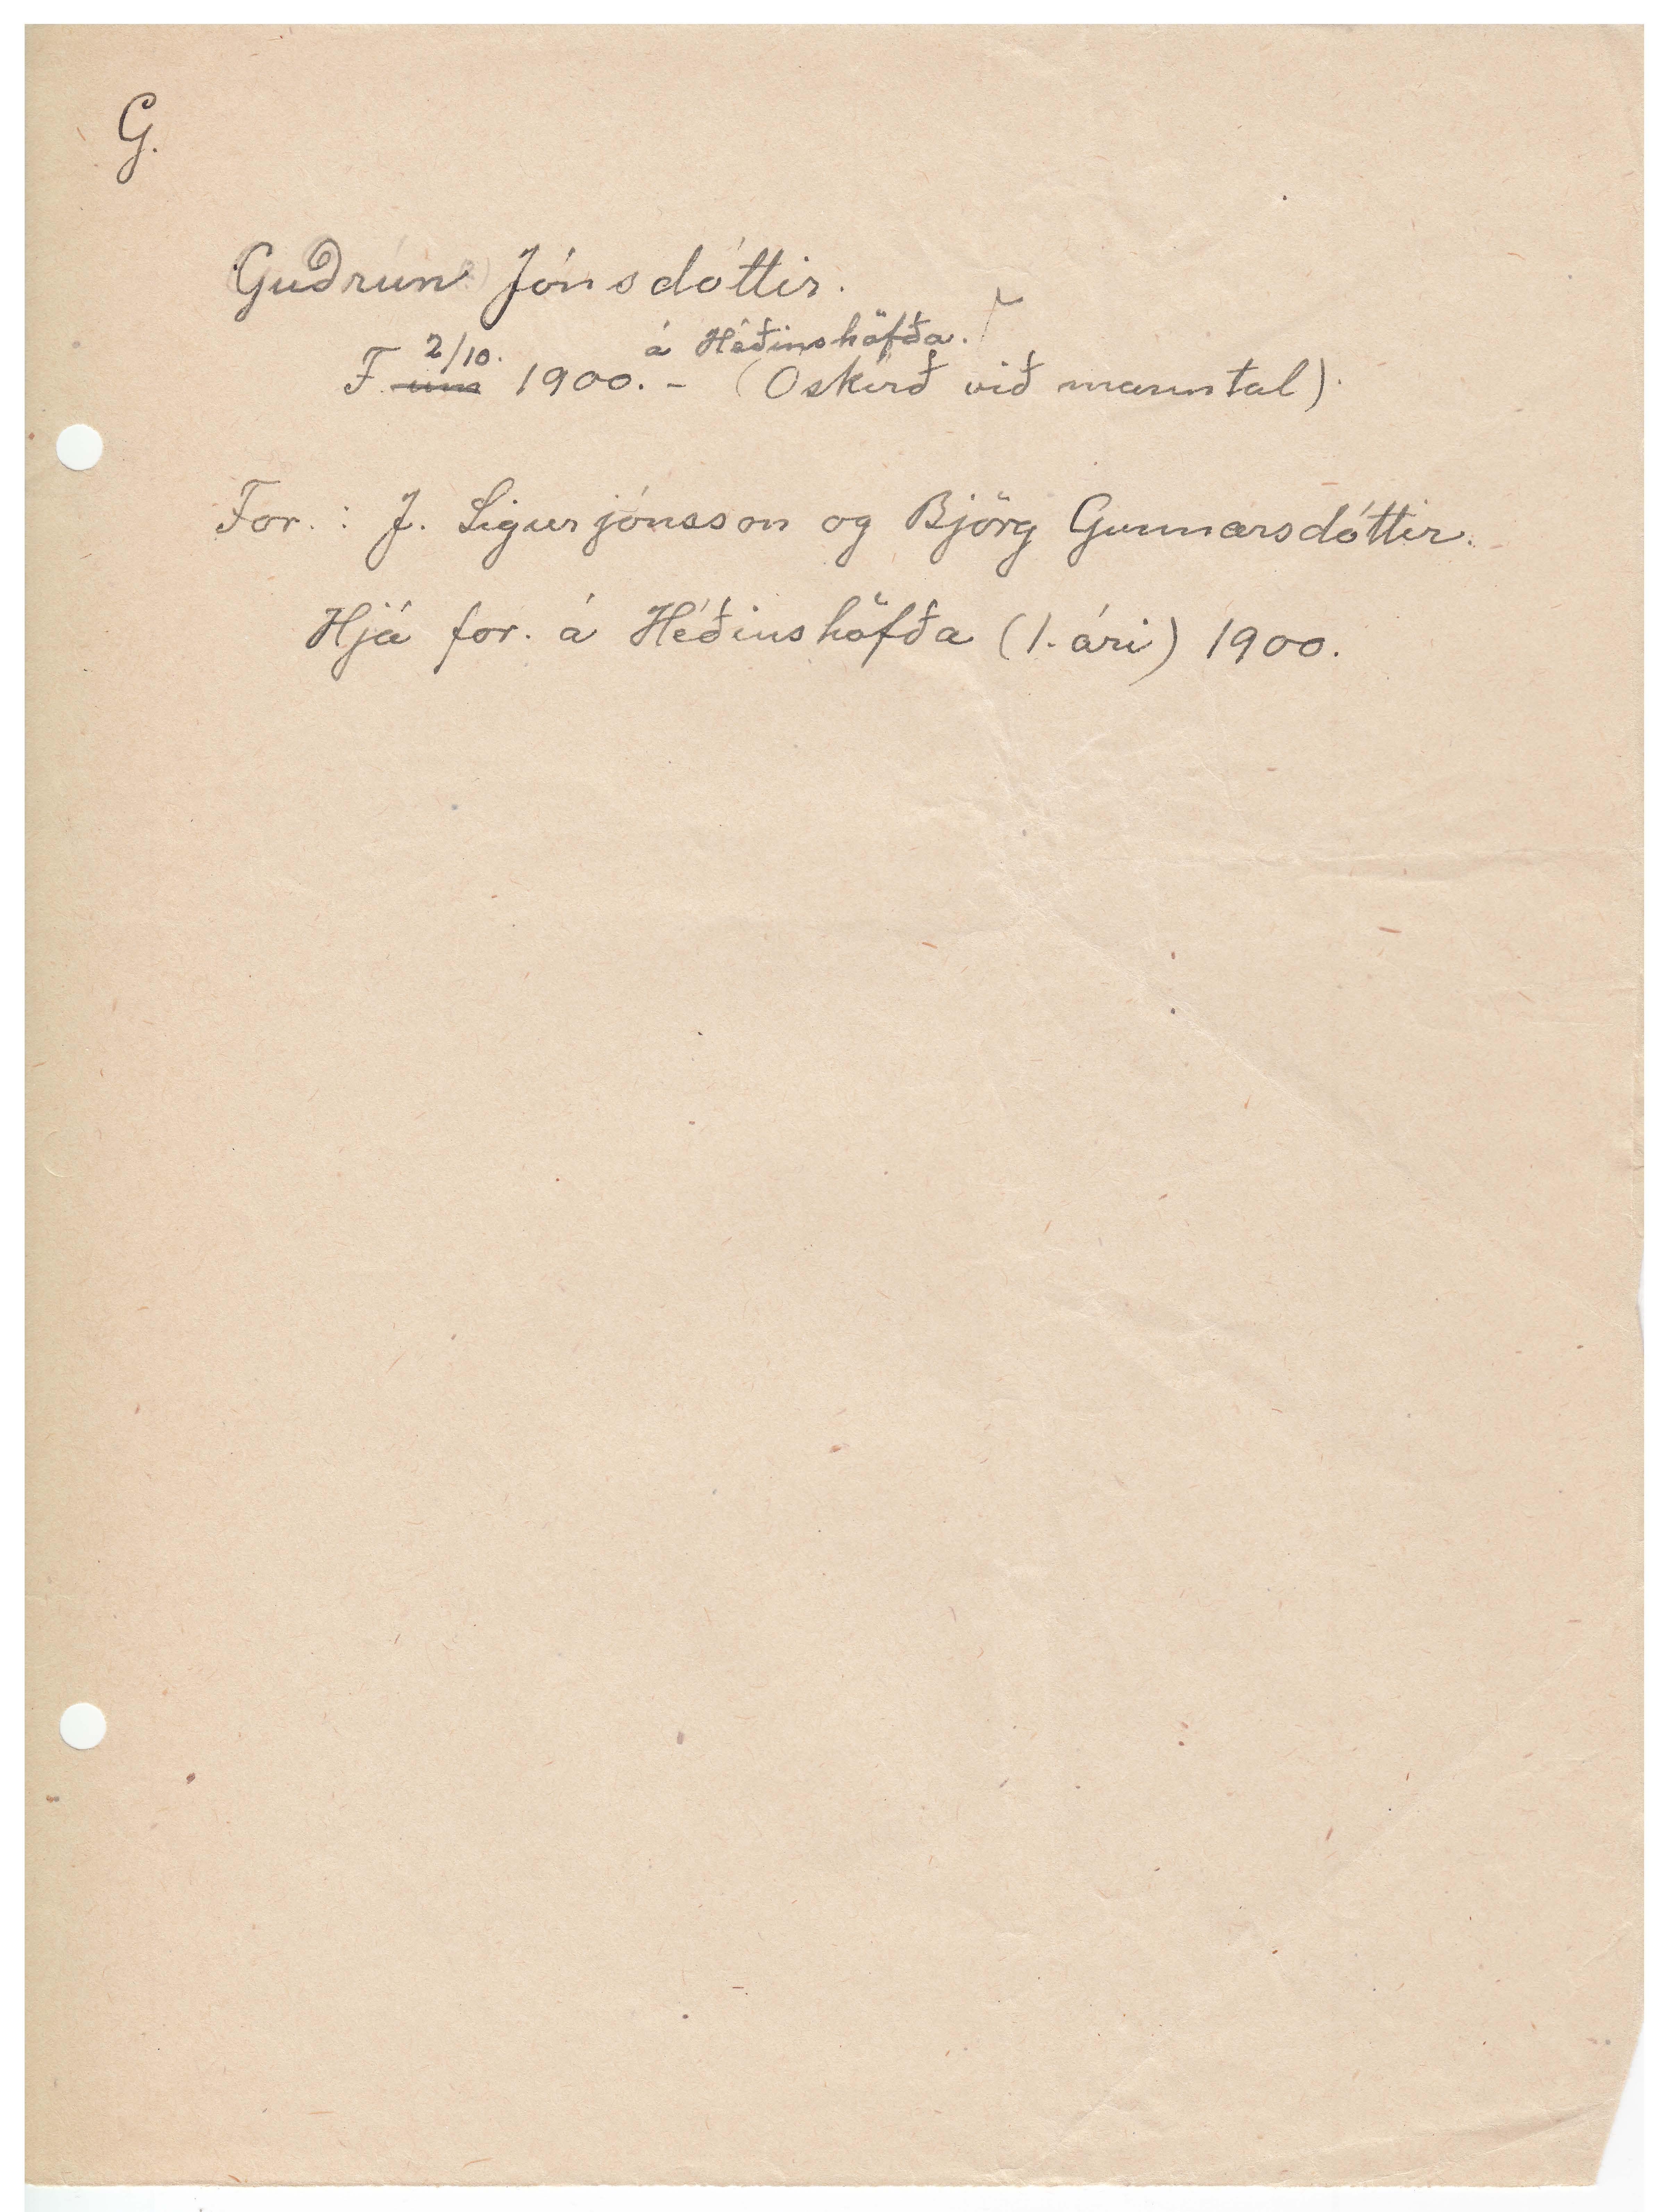 G.
Guðrún Jónsdóttir.
2/10. á Héðinshöfða.
F. um 1900. - (Óskírð við manntal).
For.: J. Sigurjónsson og Björg Gunnarsdóttir.
Hjá for. á Héðinshöfða (1. ári) 1900.